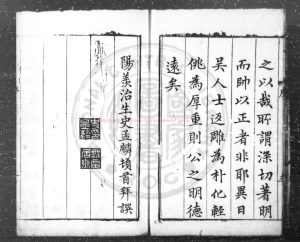 之以哉所謂深切著明
而師以正者非耶異日
吳人士返雕為朴化輕
佻為厚重則公之明德
遠矣
陽羨治生史孟麟頓首拜譔